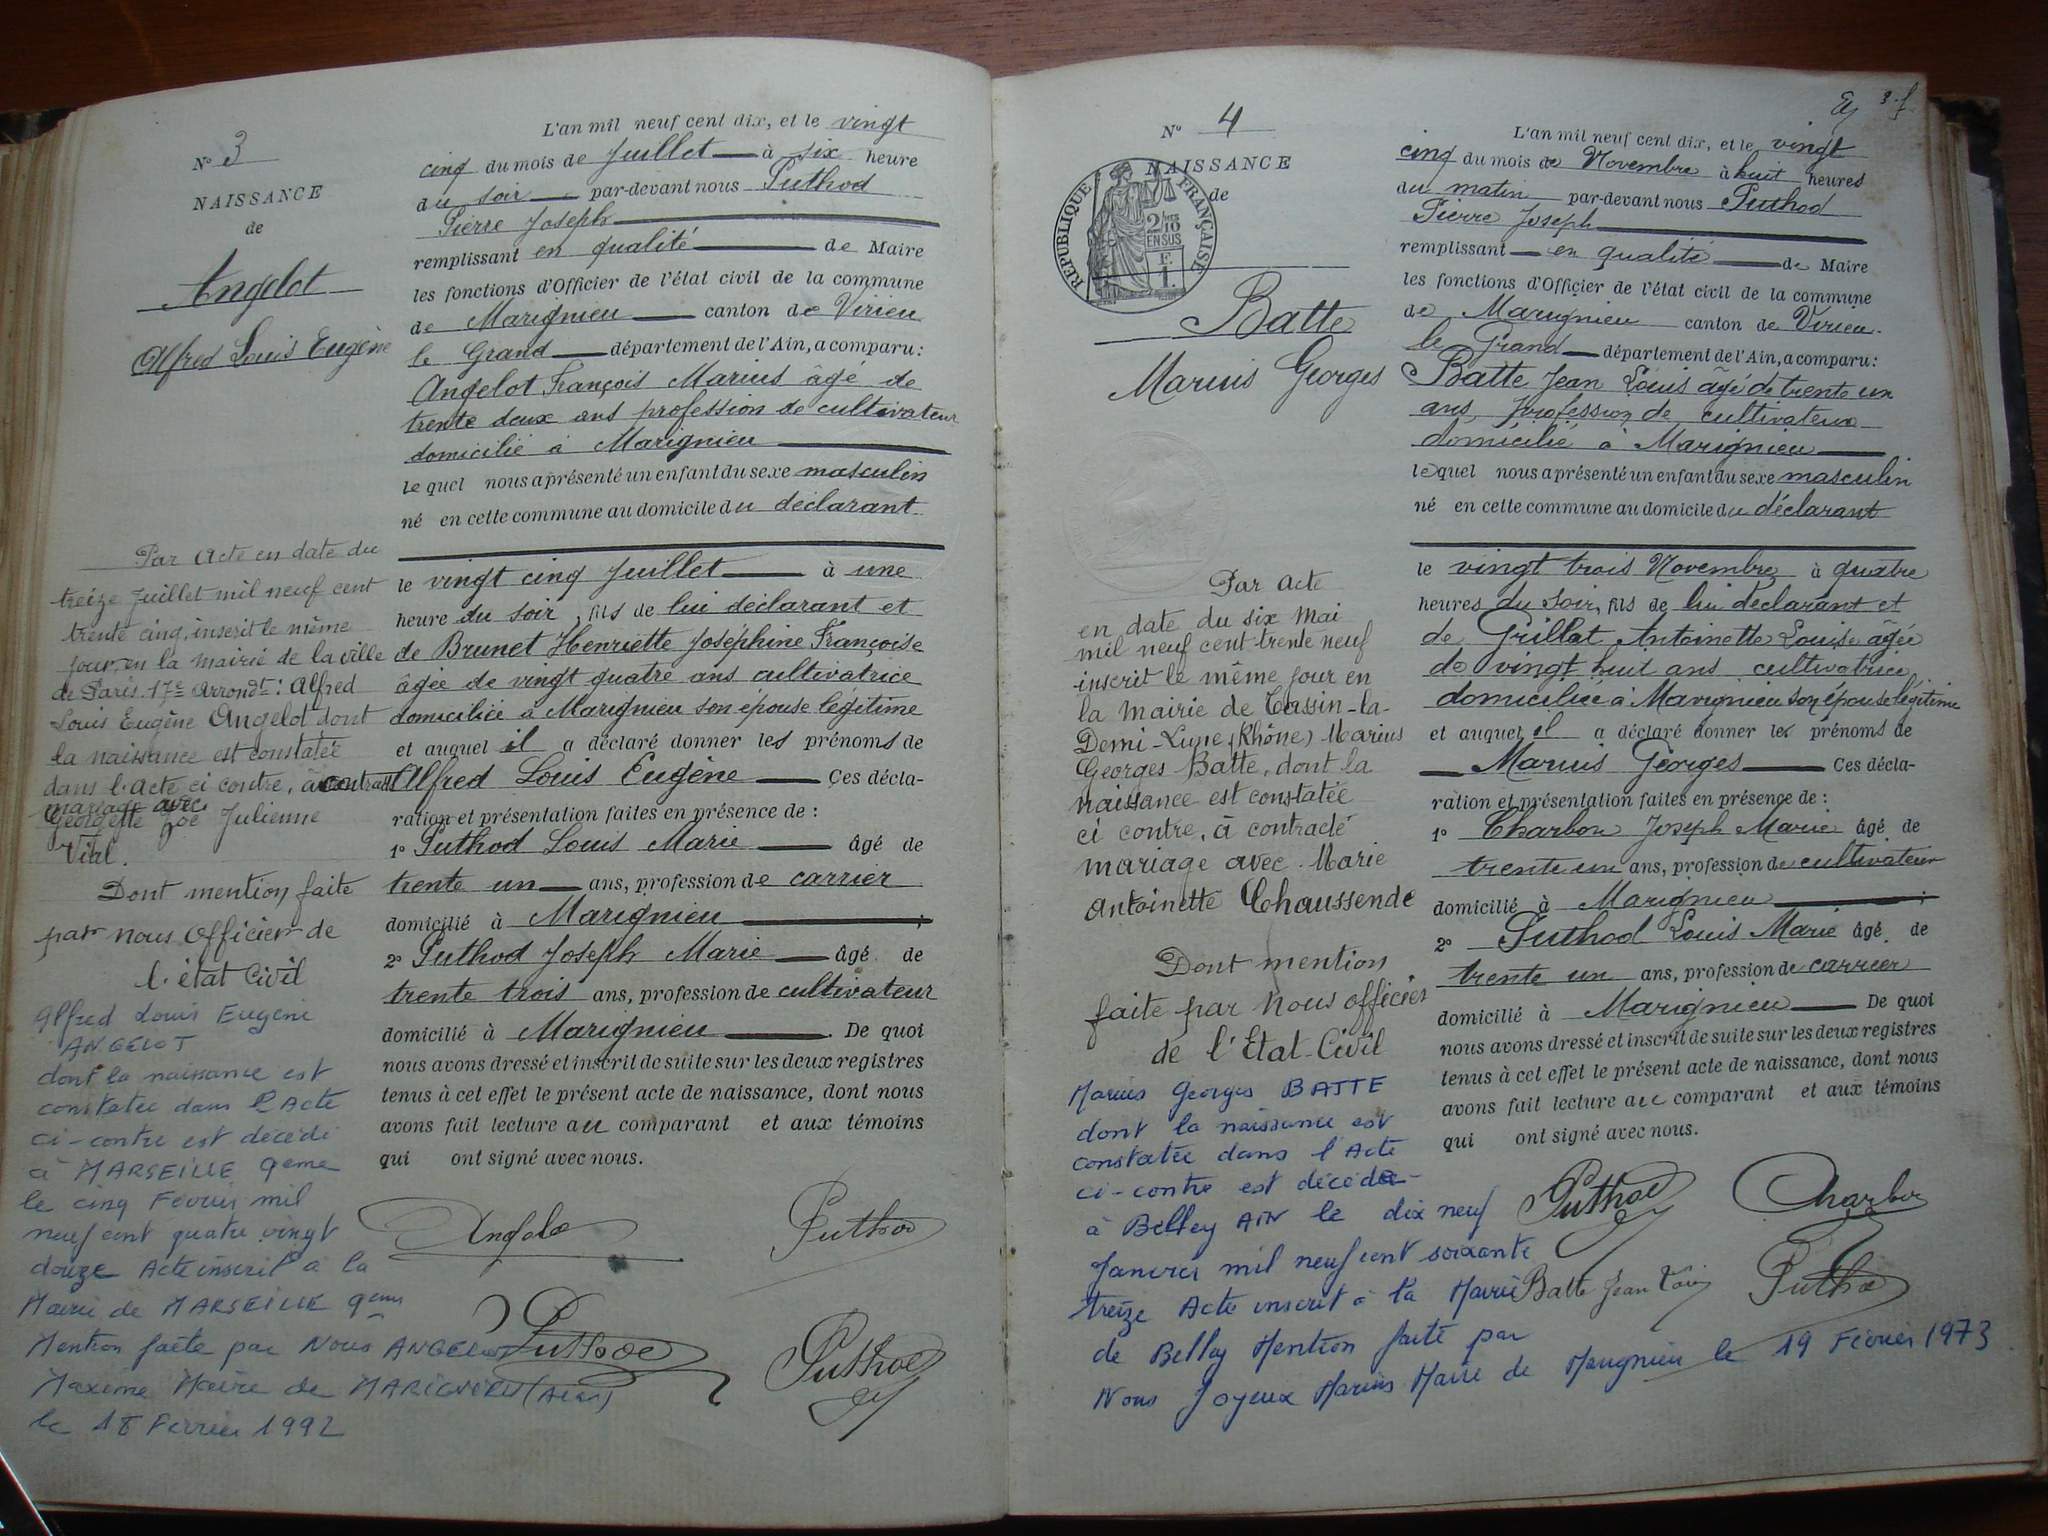 N° 3
NAISSANCE
de
Angelot
Alfred Louis Eugène
Par Acte en date du
treize Juillet mil neuf cent
trente cinq, inscrit le même
jour, en la mairie de la ville
de Paris 17e Arrondt : Alfred
Louis Eugène Angelot dont
la naissance est constatée
dans l'acte ci contre, à contracté
mariage avec
Georgette Zoé Julienne
Vial.
Dont mention faite
par nous officier de
l'état Civil
Alfred Louis Eugène
ANGELOT
dont la naissance est
constatée dans l'Acte
ci-contre est décédé
à MARSEILLE 9eme
le cinq Février mil
neuf cent quatre vingt
douze Acte inscrit à la
Mairie de MARSEILLE 9eme
Mention faite par Nous ANGELOT
Maxime Maire de MARIGNIEU (Ain)
le 18 Février 1992
L'an mil neuf cent dix, et le vingt
cinq du mois de Juillet à six heure
du soir par-devant nous Puthod
Pierre Joseph
remplissant en qualité de Maire
les fonctions d'Officier de l'état civil de la commune
de Marignieu canton de Virieu
le Grand département de l'Ain, a comparu :
Angelot François Marius âgé de
trente deux ans profession de cultivateur
domicilié à Marignieu
le quel nous a présenté un enfant du sexe masculin
né en cette commune au domicile du déclarant
le vingt cinq Juillet à une
heure du soir, fils de lui déclarant et
de Brunet Henriette Joséphine Françoise
âgée de vingt quatre ans cultivatrice
domiciliée à Marignieu son épouse légitime
et auquel il a déclaré donner les prénoms de
Alfred Louis Eugène Ces décla-
ration et présentation faites en présence de :
1° Puthod Louis Marie âgé de
trente un ans, profession de carrier
domicilié à Marignieu ;
2° Puthod Joseph Marie âgé de
trente trois ans, profession de cultivateur
domicilié à Marignieu. De quoi
nous avons dressé et inscrit de suite sur les deux registres
tenus à cet effet le présent acte de naissance, dont nous
avons fait lecture au comparant et aux témoins
qui ont signé avec nous.
Angelot Puthod
Puthod Puthod
3 f.
N° 4
NAISSANCE
de
RÉPUBLIQUE FRANÇAISE
2/10
EN SUS
F.
1.
Batte
Marius Georges
Par acte
en date du six Mai
mil neuf cent trente neuf
inscrit le même jour en
la mairie de Tassin-la-
Demi-Lune (Rhône) Marius
Georges Batte, dont la
naissance est constatée
ci contre, à contracté
mariage avec Marie
Antoinette Chaussende
Dont mention
faite par nous officier
de l'Etat-Civil
Marius Georges BATTE
dont la naissance est
constatée dans l'Acte
ci-contre est décédé
à Belley AIN le dix neuf
Janvier mil neuf cent soixante
treize Acte inscrit à la Mairie
de Belley Mention faite par
Nous Joyeux Marius Maire de Marignieu le 19 Février 1973
L'an mil neuf cent dix, et le vingt
cinq du mois de Novembre à huit heures
du matin par-devant nous Puthod
Pierre Joseph
remplissant en qualité de Maire
les fonctions d'Officier de l'état civil de la commune
de Marignieu canton de Virieu-
le Grand département de l'Ain, a comparu :
Batte Jean Louis âgé de trente un
ans profession de cultivateur
domicilié à Marignieu
lequel nous a présenté un enfant du sexe masculin
né en cette commune au domicile du déclarant
le vingt trois Novembre à quatre
heures du soir, fils de lui déclarant et
de Grillat Antoinette Louise âgée
de vingt huit ans cultivatrice
domiciliée à Marignieu son épouse légitime
et auquel il a déclaré donner les prénoms de
Marius Georges Ces décla-
ration et présentation faites en présence de :
1° Charbon Joseph Marie âgé de
trente un ans, profession de cultivateur
domicilié à Marignieu ;
2° Puthod Louis Marie âgé de
trente un ans, profession de carrier
domicilié à Marignieu De quoi
nous avons dressé et inscrit de suite sur les deux registres
tenus à cet effet le présent acte de naissance, dont nous
avons fait lecture au comparant et aux témoins
qui ont signé avec nous.
Puthod Charbon
Batte Jean Louis Puthod